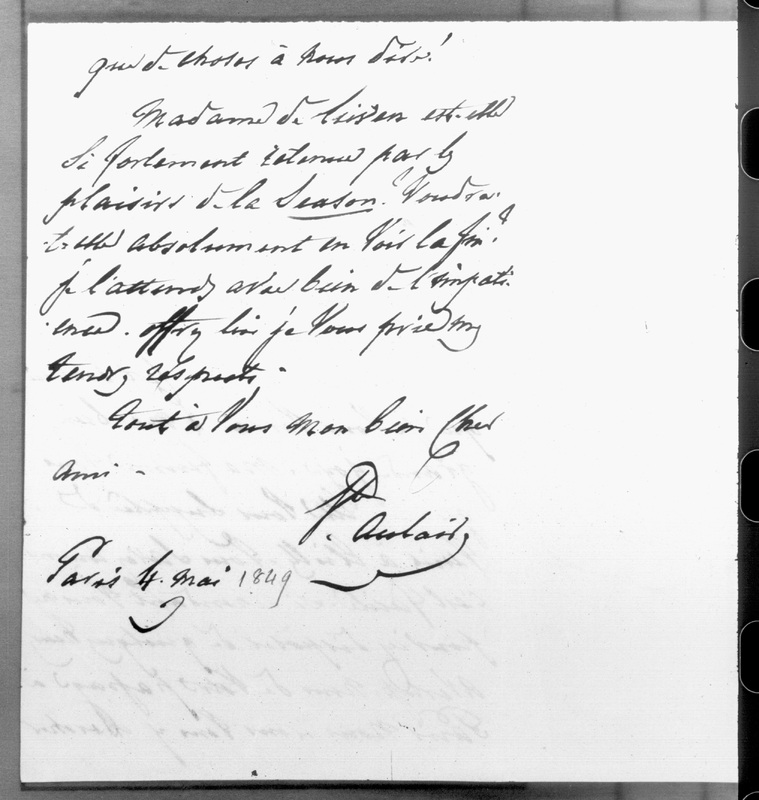 que de choses à nous dire!
Madame de Lieven est-elle
si fortement retenue par les
plaisirs de la Season? Voudra-
t-elle absolument en voir la fin?
je l'attends avec bien de l'impati-
-ence. offrez lui je vous prie mes
tendres respects.
tout à vous mon bien cher
ami -
Ste. Aulaire
Paris 4. mai 1849